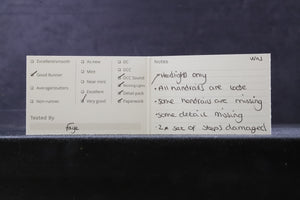 Excellent/smooth
Good Runner
Average/stutters
Non-runner
Tested By
Faye
As new
Mint
Near mint
Excellent
Very good
DC
DCC
DCC Sound
Working Lights
Detail pack
Paperwork
Notes
Headlight only
• All handrails are loose
• some handrails are missing
• some detail missing
• 2x set of steps damaged